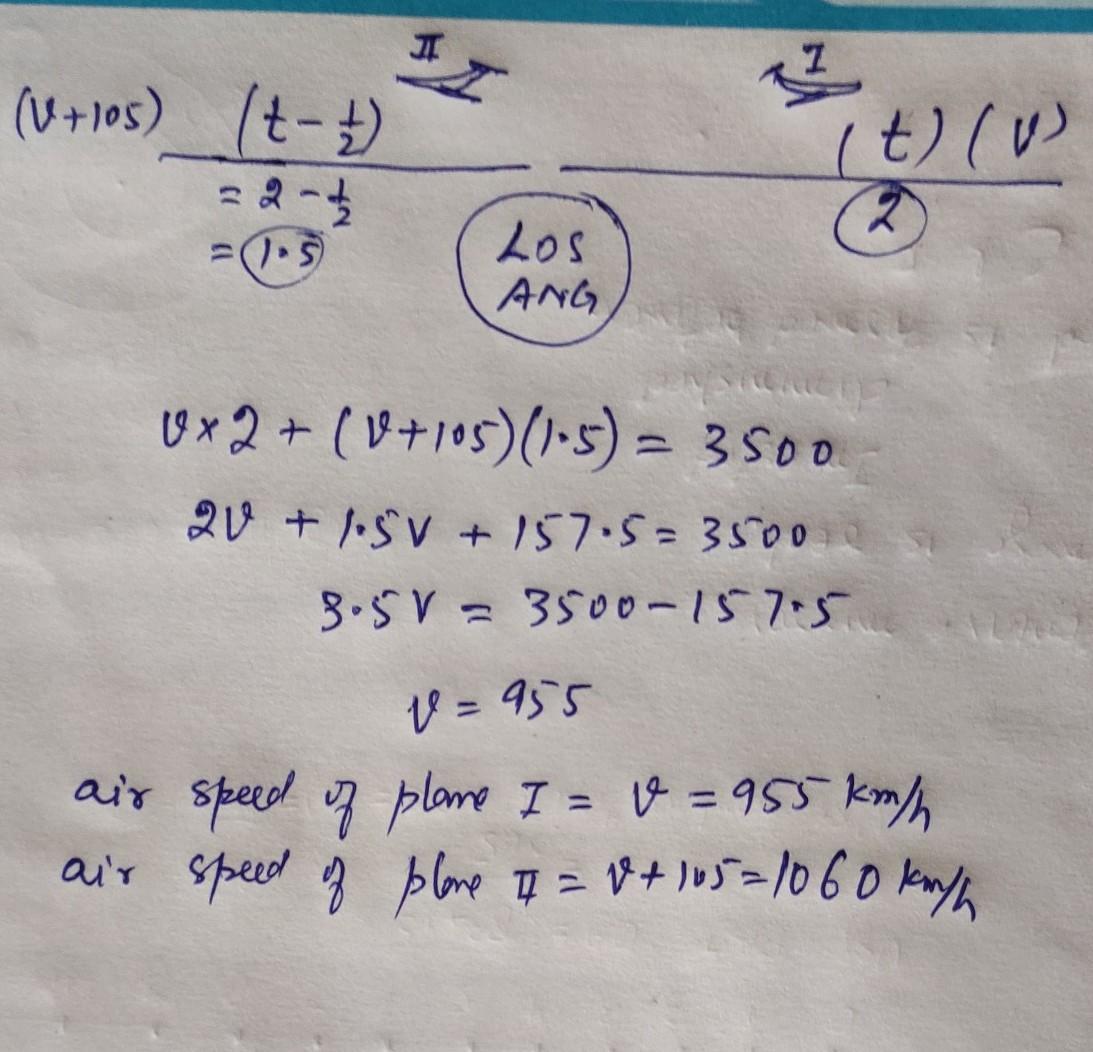 II I
(v+105) (t-1/2) (t)(v)
= 2-1/2 2
= 1.5
LOS
ANG
v×2 + (v+105)(1.5) = 3500
2v + 1.5v + 157.5 = 3500
3.5v = 3500-157.5
v = 955
air speed of plane I = v = 955 km/h
air speed of plane II = v+105=1060 km/h